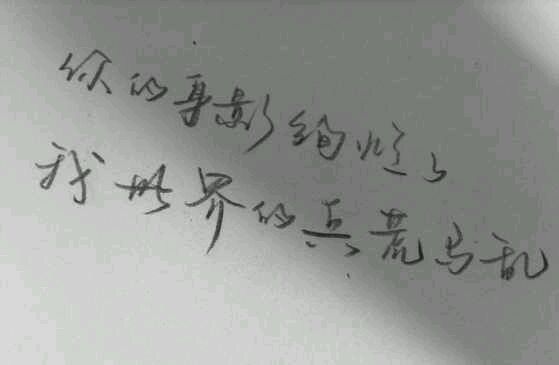 你的身影绚烂了
我世界的兵荒马乱